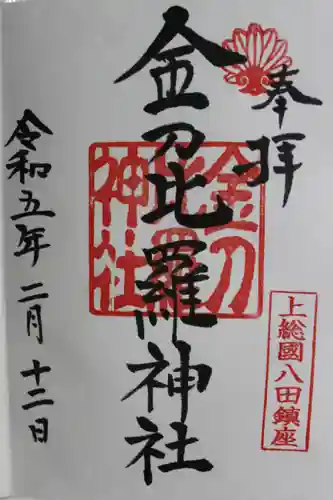 奉拝
上総國八田鎮座
金刀比羅神社
金刀比羅神社
令和五年二月十二日